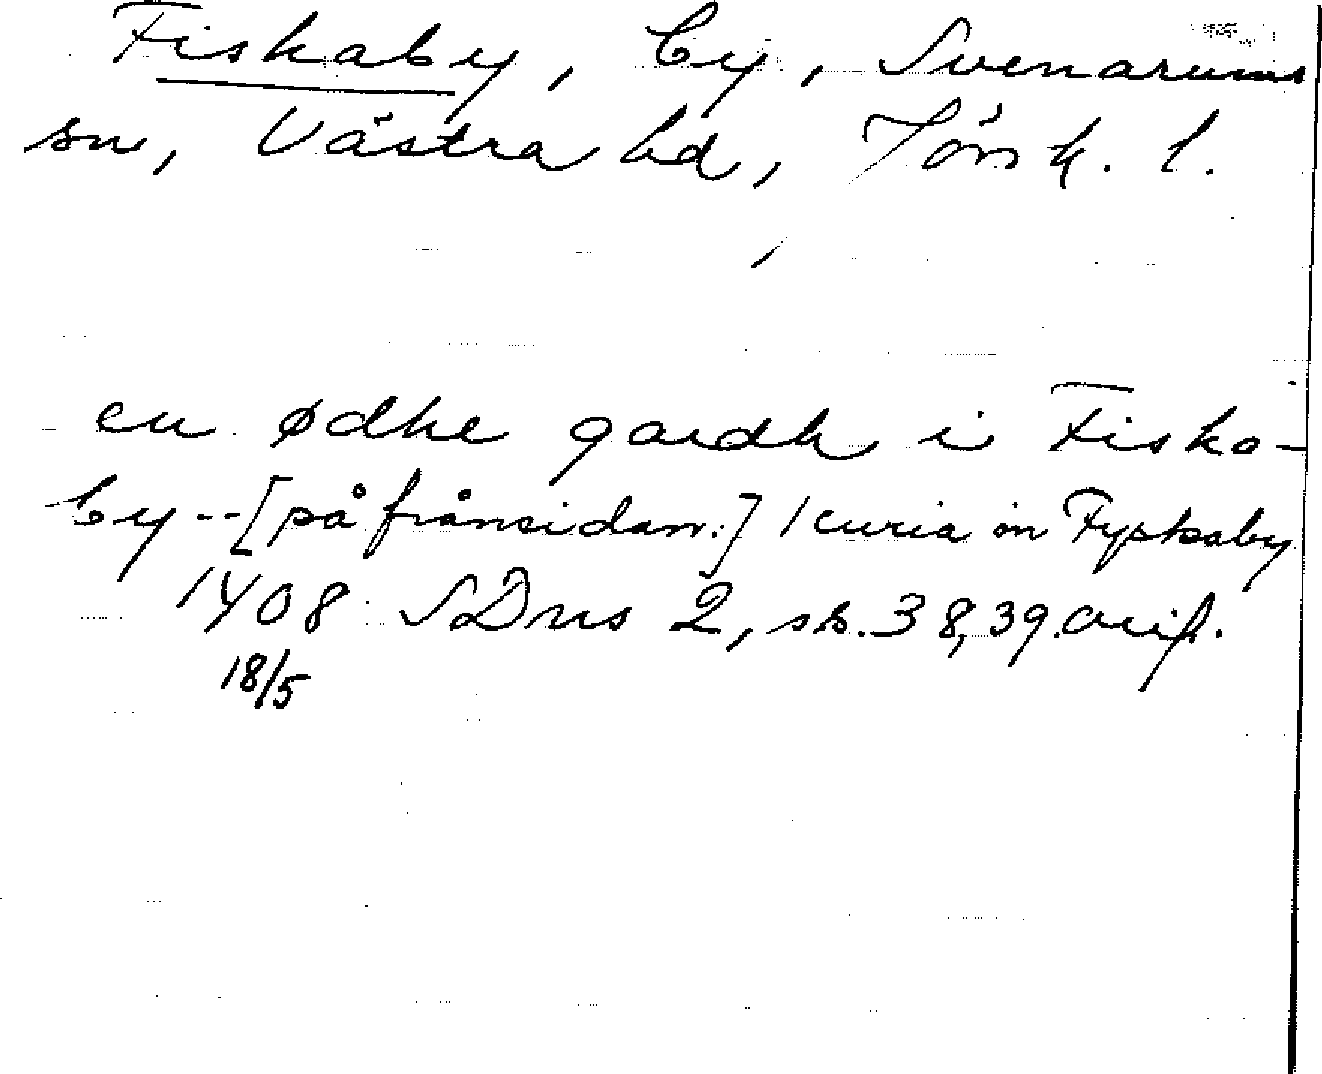 Fiskaby, by, Svenarums
sn, Västra hd, Jönk. l.
en ødhe gardh i Fiska-
by -- [på frånsidan:] 1 curia in Fyskaby
1408 SDns 2, ss. 38, 39. avskr.
18/5